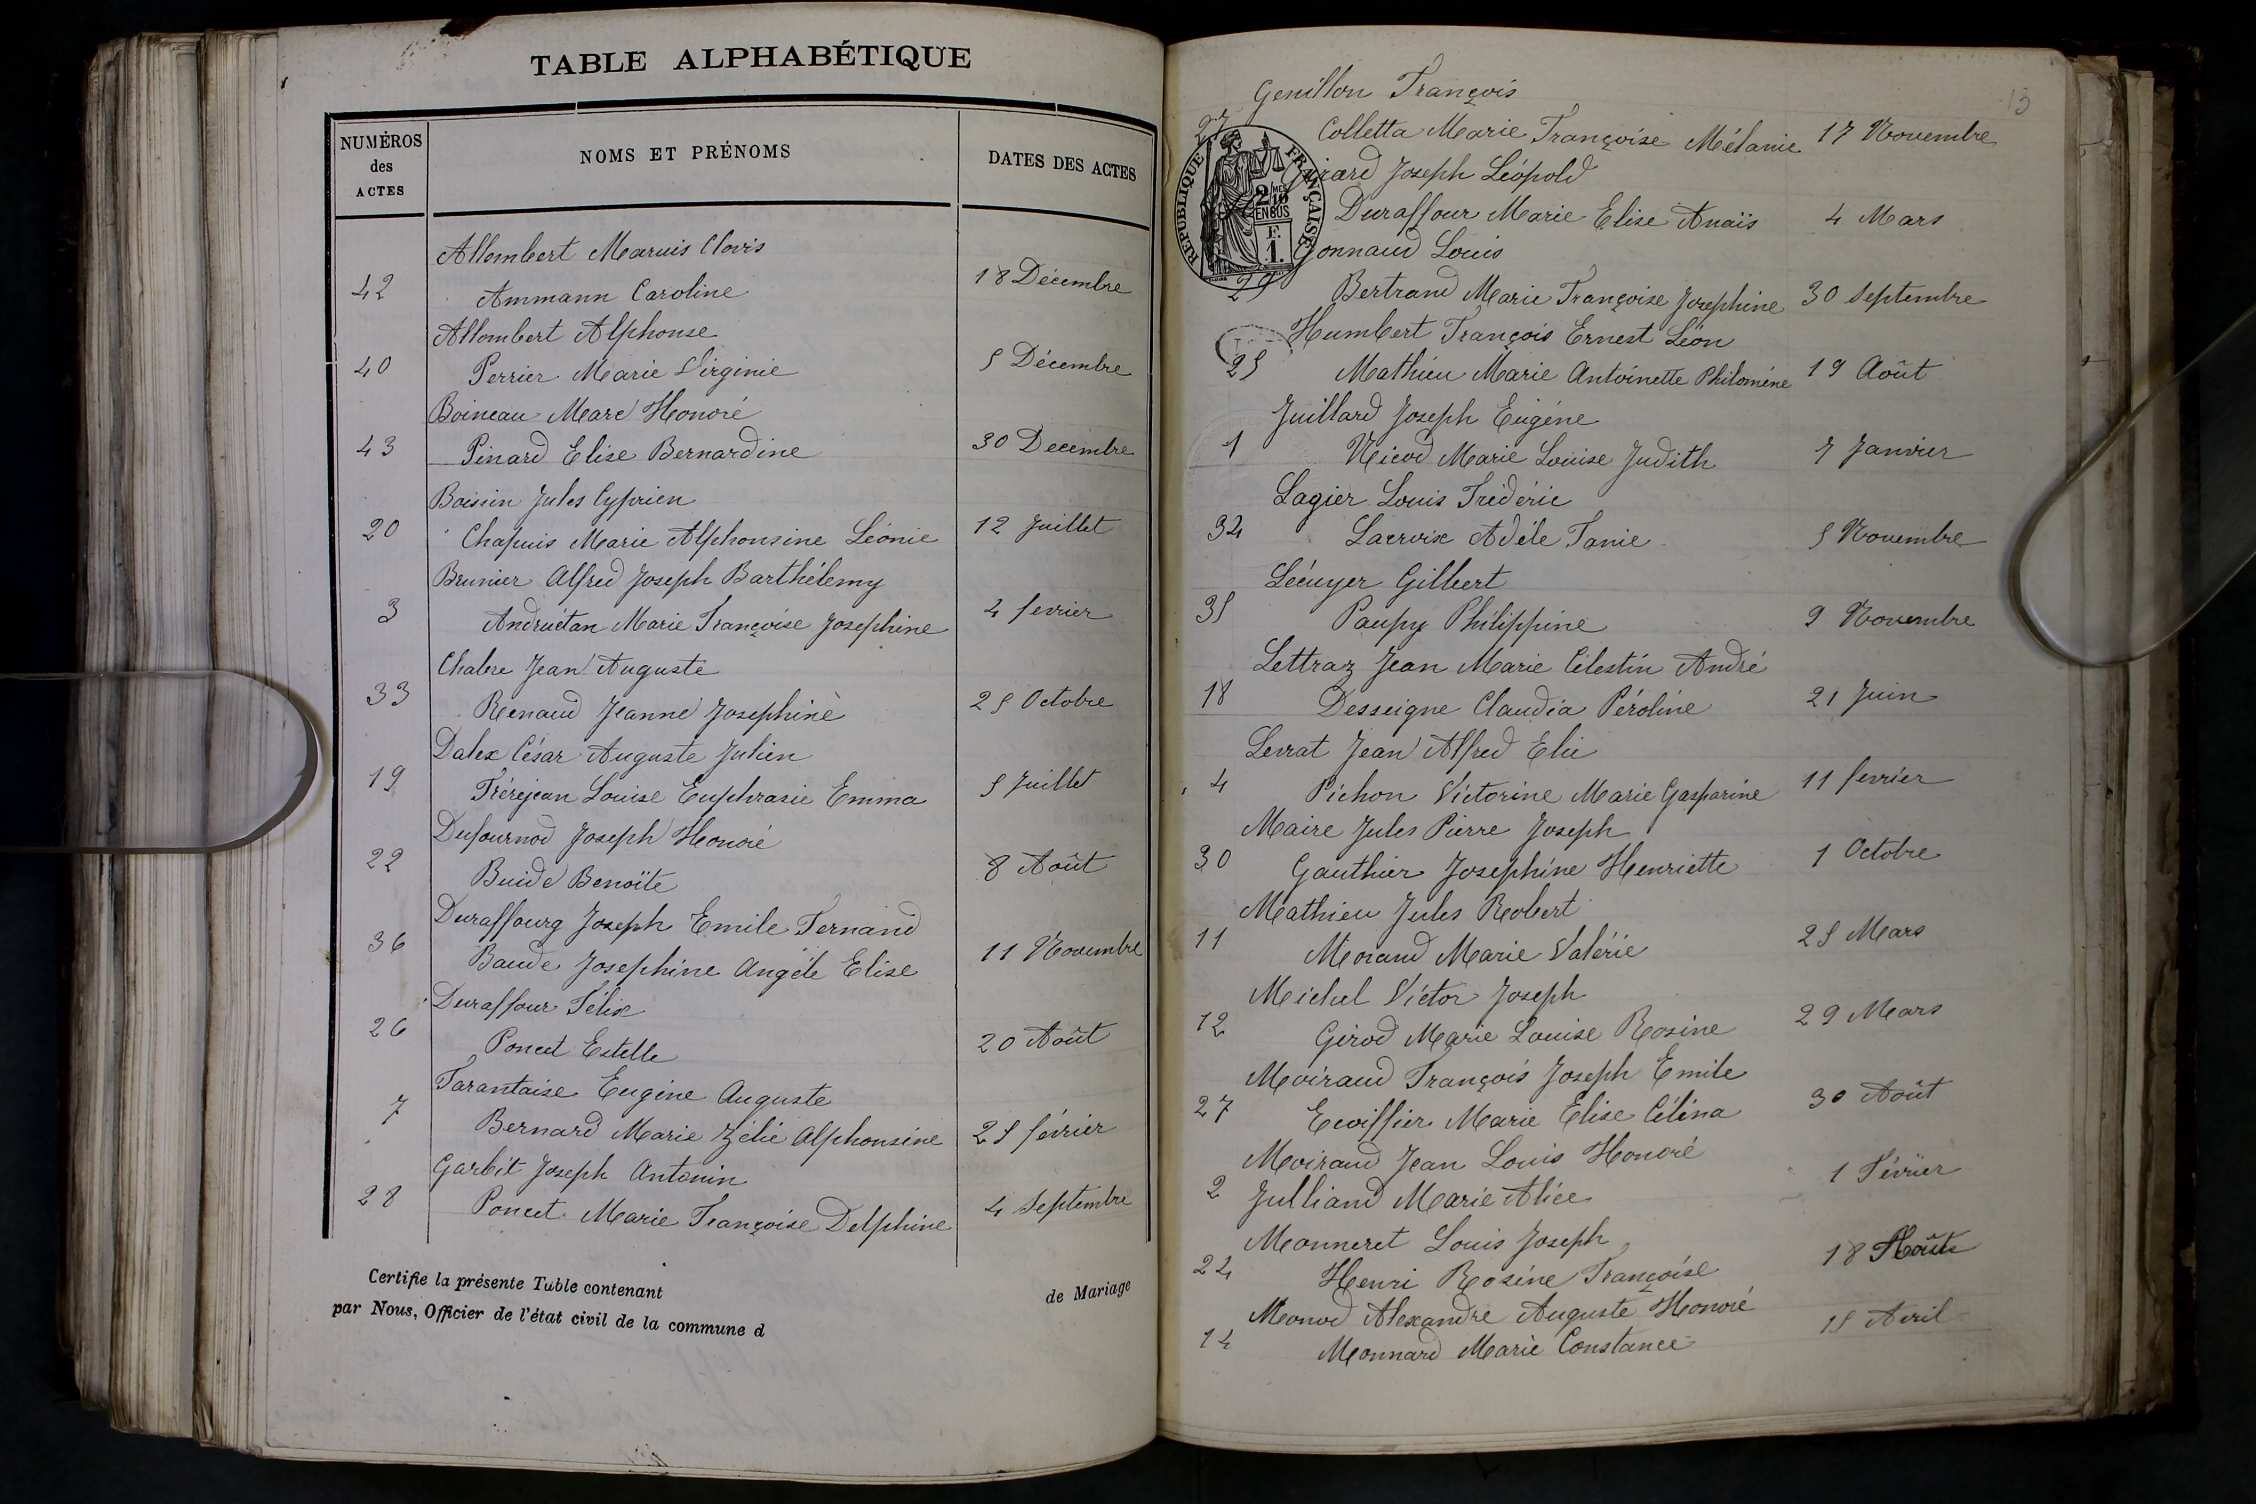 TABLE ALPHABÉTIQUE
NUMÉROS des ACTES
NOMS ET PRÉNOMS
DATES DES ACTES
Allombert Maruis Clovis
42 Ammann Caroline 18 Décembre
Allombert Alphonse
40 Perrier Marie Virginie 5 Décembre
Boineau Marc Honoré
43 Pinard Elise Bernardine 30 Decembre
Boisin Jules Cyprien
20 Chapuis Marie Alphonsine Léonie 12 Juillet
Brunier Alfred Joseph Barthélemy
3 Andruétan Marie Françoise Josephine 4 fevrier
Chabre Jean Auguste
33 Renaud Jeanne Josephine 25 Octobre
Dalex César Auguste Julien
19 Frérejean Louise Euphrasie Emma 5 Juillet
Dufournod Joseph Honoré
22 Buide Benoïte 8 Août
Duraffourg Joseph Emile Fernand
36 Baude Josephine Angéle Elise 11 Novembre
Duraffour Félix
26 Poncet Estelle 20 Août
Tarantaise Eugéne Auguste
7 Bernard Marie Zélie Alphonsine 25 février
Garbit Joseph Antonin
28 Poncet Marie Françoise Delphine 4 Septembre
Certifie la présente Table contenant de Mariage
par Nous, Officier de l'état civil de la commune d
13
Genillon François
Colletta Marie Françoise Mélanie 17 Novembre
RÉPUBLIQUE FRANÇAISE
2/10 MES EN SUS
F. 1.
Girard Joseph Léopold
Duraffour Marie Elise Anaïs 4 Mars
Gonnaud Louis
29 Bertrand Marie Françoise Josephine 30 Septembre
Humbert François Ernest Léon
25 Mathieu Marie Antoinette Philoméne 19 Août
Juillard Joseph Eugéne
1 Nicod Marie Louise Judith 7 Janvier
Lagier Louis Fréderic
34 Lacroix Adéle Fanie 5 Novembre
Lécuyer Gilbert
35 Paupy Philippine 9 Novembre
Lettraz Jean Marie Célestin André
18 Desseigne Claudia Péroline 21 Juin
Levrat Jean Alfred Elie
4 Pichon Victorine Marie Gasparine 11 fevrier
Maire Jules Pierre Joseph
30 Gauthier Josephine Henriette 1 Octobre
Mathieu Jules Robert
11 Morand Marie Valérie 25 Mars
Michel Victor Joseph
12 Girod Marie Louise Rosine 29 Mars
Moiraud François Joseph Emile
27 Ecoiffier Marie Elise Célina 30 Août
Moiraud Jean Louis Honoré
2 Julliand Marie Alice 1 Février
Monneret Louis Joseph
24 Henri Rosine Françoise 18 Août
Monod Alexandre Auguste Honoré
14 Monnard Marie Constance 15 Avril